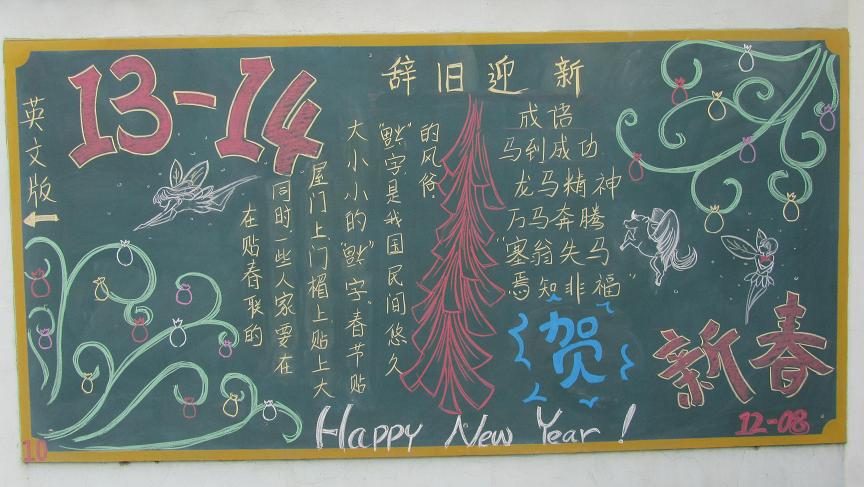 13-14
英文版
辞旧迎新
在贴春联的
同时一些人家要在
屋门上门楣上贴上大
大小小的" "字。春节贴
" "字是我国民间悠久
的风俗。
成语
马到成功
龙马精神
万马奔腾
"塞翁失马
焉知非福"
贺
新春
12-08
Happy New Year!
10